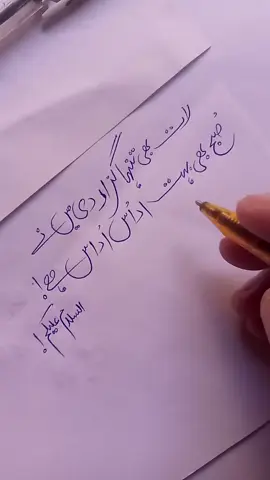 رات بھی تنہا گزار دی میں نے
صبح بھی بہت اداس اداس ہے!
السلام علیکم!